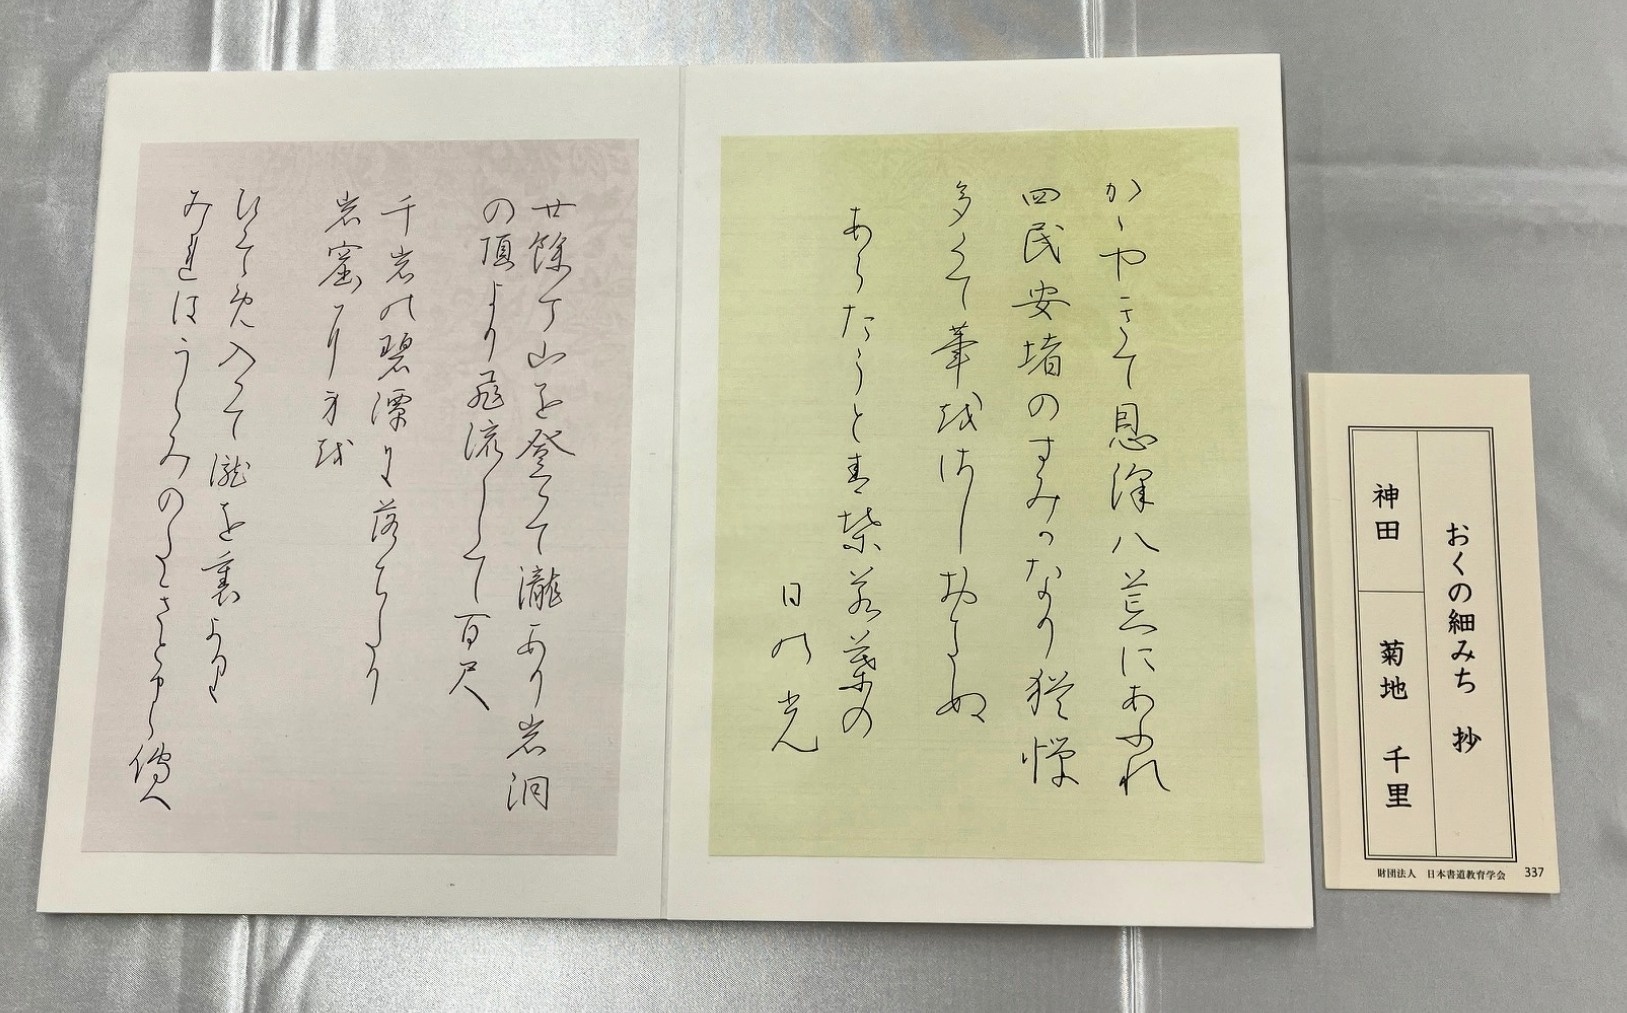 かゝやきて恩澤八荒にあふれ
四民安堵のすみかなり猶憚
多くて筆をさし於きぬ
あらたうと青葉若葉の
日の光
廿餘丁山を登つて瀧あり岩洞
の頂より飛流して百尺
千岩の碧潭に落たり
岩窟に身を
ひそめ入て瀧の裏より
みればうらみのたきと申し傳へ
おくの細みち 抄
神田 菊地 千里
財団法人 日本書道教育学会 337